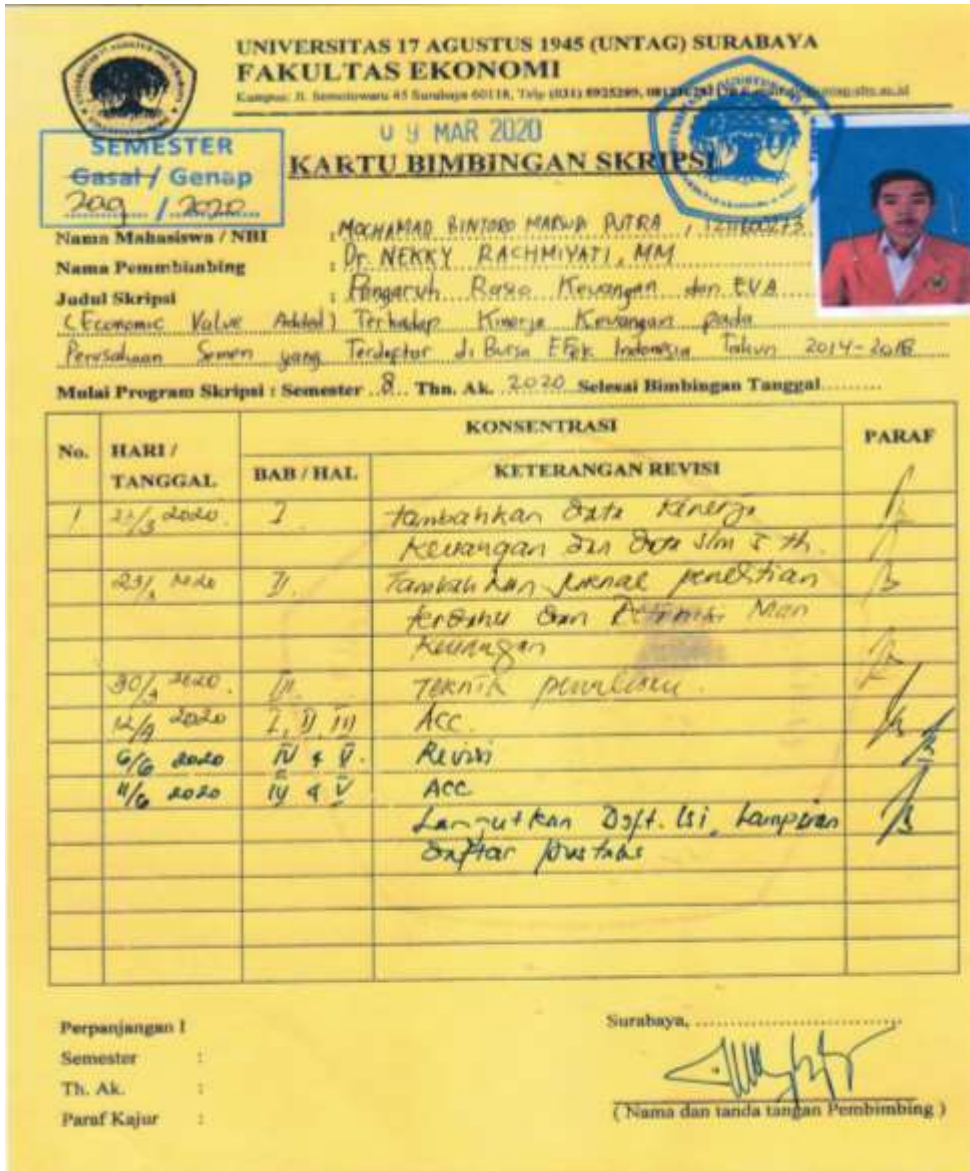 UNIVERSITAS 17 AGUSTUS 1945 (UNTAG) SURABAYA
FAKULTAS EKONOMI
Kampus: Jl. Semolowaru 45 Surabaya 60118, Telp (031) 5925289,
09 MAR 2020
SEMESTER
Gasal / Genap
/ 2020
KARTU BIMBINGAN SKRIPSI
Nama Mahasiswa / NBI : MOCHAMAD BINTORO MARWA PUTRA /
Nama Pemmbimbing : Dr. NEKKY RACHMIYATI, MM
Judul Skripsi : Pengaruh Rasio Keuangan dan EVA
(Economic Value Added) Terhadap Kinerja Keuangan pada
Perusahaan Semen yang Terdaftar di Bursa Efek Indonesia Tahun 2014-2018
Mulai Program Skripsi : Semester 8 Thn. Ak. 2020 Selesai Bimbingan Tanggal
No. HARI / TANGGAL KONSENTRASI PARAF
BAB / HAL KETERANGAN REVISI
1 2020 I tambahkan data kinerja
keuangan dan data 5 th.
2020 II. Tambahkan jurnal penelitian
terdahulu dan Man
Keuangan
2020. III. Teknik
2020 I, II, III Acc.
6/6 2020 IV & V. Revisi
11/6 2020 IV & V Acc
Lanjutkan Daft. Isi, Lampiran
Daftar pustaka
Perpanjangan I
Semester :
Th. Ak. :
Paraf Kajur :
Surabaya,
( Nama dan tanda tangan Pembimbing )